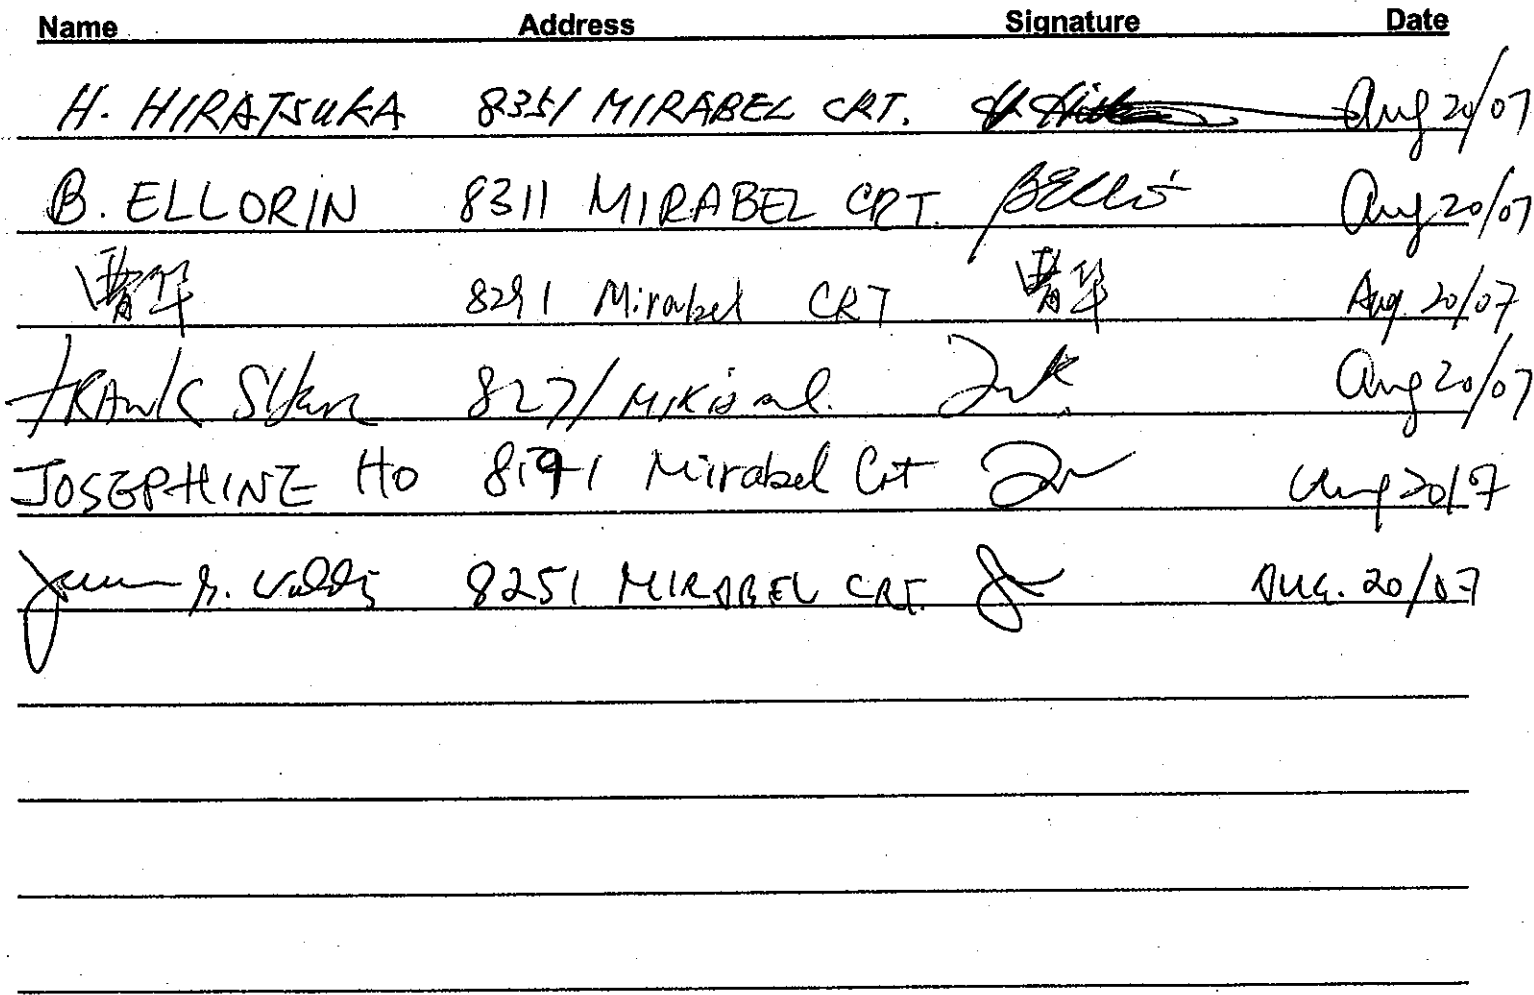 Name Address Signature Date
H. HIRATSUKA 8351 MIRABEL CRT. Aug 20/07
B. ELLORIN 8311 MIRABEL CRT. Aug 20/07
曹华 8291 Mirabel CRT 曹华 Aug. 20/07
FRANK 8271 Aug 20/07
JOSEPHINE Ho 8191 Mirabel Crt Aug 20/07
8251 MIRABEL CRT. AUG. 20/07